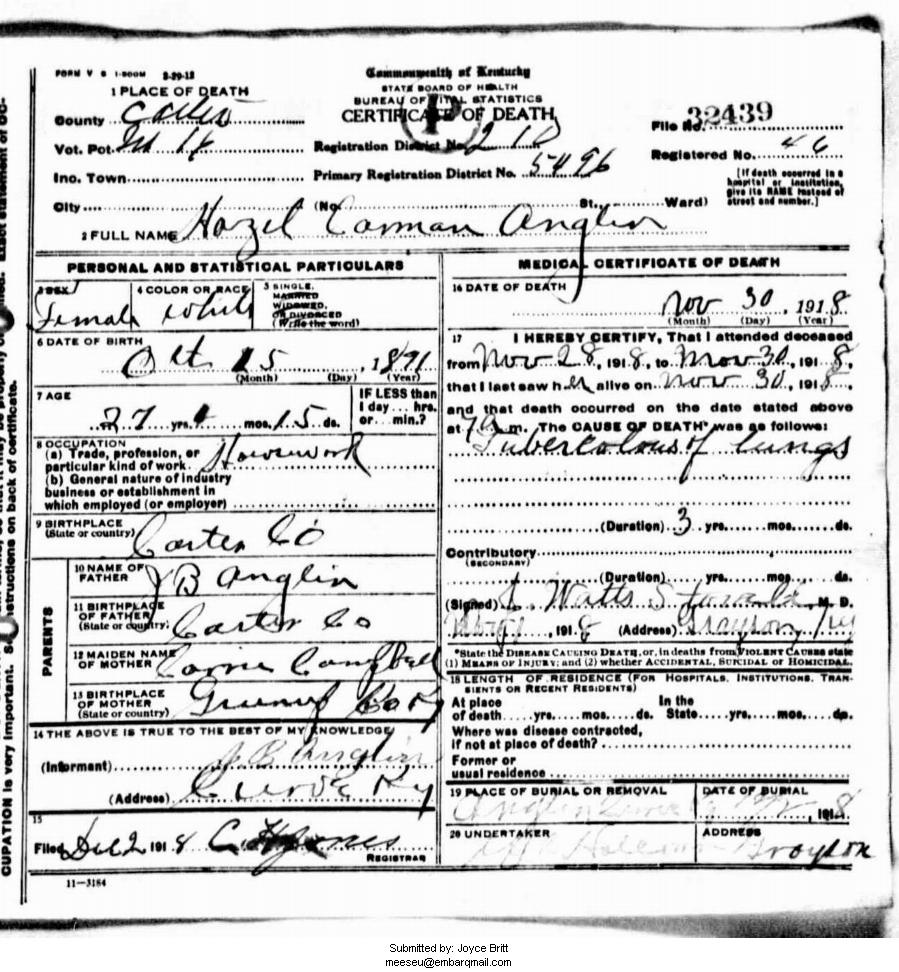 FORM V S 1-500M 3-20-13
Commonwealth of Kentucky
STATE BOARD OF HEALTH
BUREAU OF VITAL STATISTICS
CERTIFICATE OF DEATH
1 PLACE OF DEATH
County Carter
Vot. Pct
Inc. Town
City
Registration District No. 210
Primary Registration District No. 5496
(No. St., Ward)
File No. 32439
Registered No. 46
[If death occurred in a hospital or institution, give its NAME instead of street and number.]
2 FULL NAME Hazel Carman Anglin
PERSONAL AND STATISTICAL PARTICULARS
3 SEX Female
4 COLOR OR RACE White
5 SINGLE, MARRIED WIDOWED, OR DIVORCED (Write the word)
6 DATE OF BIRTH
Oct 15, 1891
(Month) (Day) (Year)
7 AGE
27 yrs. 1 mos. 15 ds.
IF LESS than 1 day... hrs. or... min.?
8 OCCUPATION
(a) Trade, profession, or particular kind of work Housework
(b) General nature of industry business or establishment in which employed (or employer)
9 BIRTHPLACE (State or country) Carter Co
PARENTS
10 NAME OF FATHER J B Anglin
11 BIRTHPLACE OF FATHER (State or country) Carter Co
12 MAIDEN NAME OF MOTHER Campbell
13 BIRTHPLACE OF MOTHER (State or country) Greenup Co Ky
14 THE ABOVE IS TRUE TO THE BEST OF MY KNOWLEDGE
(Informant) J B Anglin
(Address) Ky
15
Filed Dec 2 1918 C H Jones
REGISTRAR
11-3184
MEDICAL CERTIFICATE OF DEATH
16 DATE OF DEATH
Nov 30, 1918
(Month) (Day) (Year)
17 I HEREBY CERTIFY, That I attended deceased
from Nov 28, 1918, to Nov 30, 1918,
that I last saw her alive on Nov 30, 1918,
and that death occurred on the date stated above
at 7 m. The CAUSE OF DEATH* was as follows:
Tuberculous of lungs
(Duration) 3 yrs. mos. ds.
Contributory
(SECONDARY)
(Duration) yrs. mos. ds.
(Signed) Watts M. D.
1918 (Address) Grayson Ky
*State the DISEASE CAUSING DEATH, or, in deaths from VIOLENT CAUSES state
(1) MEANS OF INJURY; and (2) whether ACCIDENTAL, SUICIDAL or HOMICIDAL.
18 LENGTH OF RESIDENCE (FOR HOSPITALS, INSTITUTIONS, TRANSIENTS OR RECENT RESIDENTS)
At place of death yrs. mos. ds. In the State yrs. mos. ds.
Where was disease contracted, if not at place of death?
Former or usual residence
19 PLACE OF BURIAL OR REMOVAL
Anglin
DATE OF BURIAL
1918
20 UNDERTAKER
ADDRESS
Grayson
CUPATION is very important. instructions on back of certificate.
Submitted by: Joyce Britt
meeseu@embarqmail.com